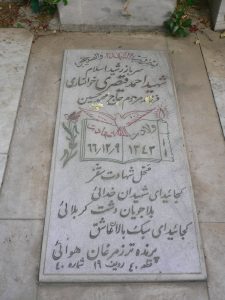 سرباز رشید اسلام
شهید احمد قنصری خوانساری
فرزند مرحوم حاج حسین
ولادت
شهادت
۱۳۴۳
۶۶/۱۲/۹
محل شهادت
کجائید ای شهیدان خدائی
بلاجویان دشت کربلائی
کجائید ای سبک بالان عاشق
پرنده تر ز مرغان هوائی
قطعه ۴۰ ردیف ۱۹ شماره ۴۰